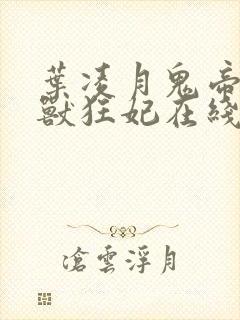 葉凌月鬼帝
獸狂妃在綫
滄雲浮月